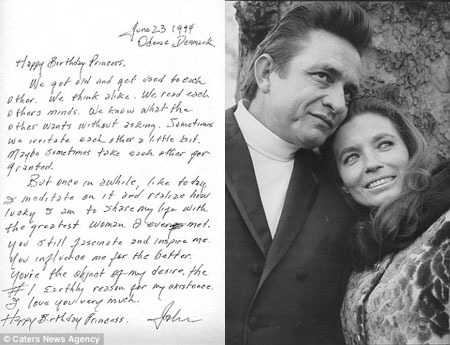 June 23 1994
Odense, Denmark.
Happy Birthday Princess,
We get old and get used to each
other. We think alike. We read each
others minds. We know what the
other wants without asking. Sometimes
we irritate each other a little bit.
Maybe sometimes take each other for
granted.
But once in awhile, like today,
I meditate on it and realize how
lucky I am to share my life with
the greatest woman I ever met.
You still fascinate and inspire me.
You influence me for the better.
You're the object of my desire, the
#1 Earthly reason for my existence.
I love you very much.
Happy Birthday Princess.
John
© Caters News Agency